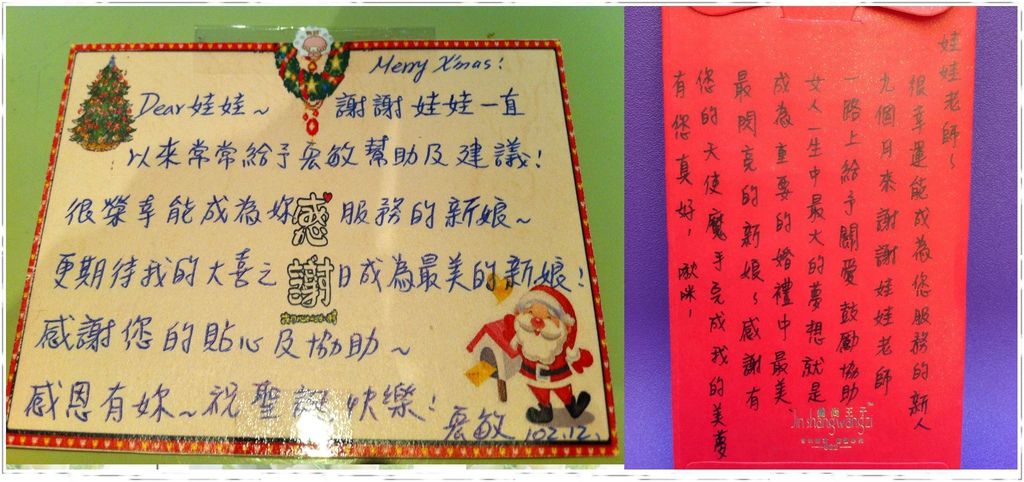 Merry X'mas!
Dear 娃娃~ 謝謝娃娃一直
以來常常給予宏敏幫助及建議!
很榮幸能成為妳服務的新娘~
更期待我的大喜之日成為最美的新娘!
感謝您的貼心及協助~
感恩有妳~祝聖誕快樂!
宏敏 102.12.
感謝
娃娃老師~
很幸運能成為您服務的新人
九個月來謝謝娃娃老師
一路上給予關愛鼓勵協助
女人一生中最大的夢想就是
成為重要的婚禮中最美
最閃亮的新娘~感謝有
您的天使魔手完成我的美夢
有您真好,
Jinshangwangzi